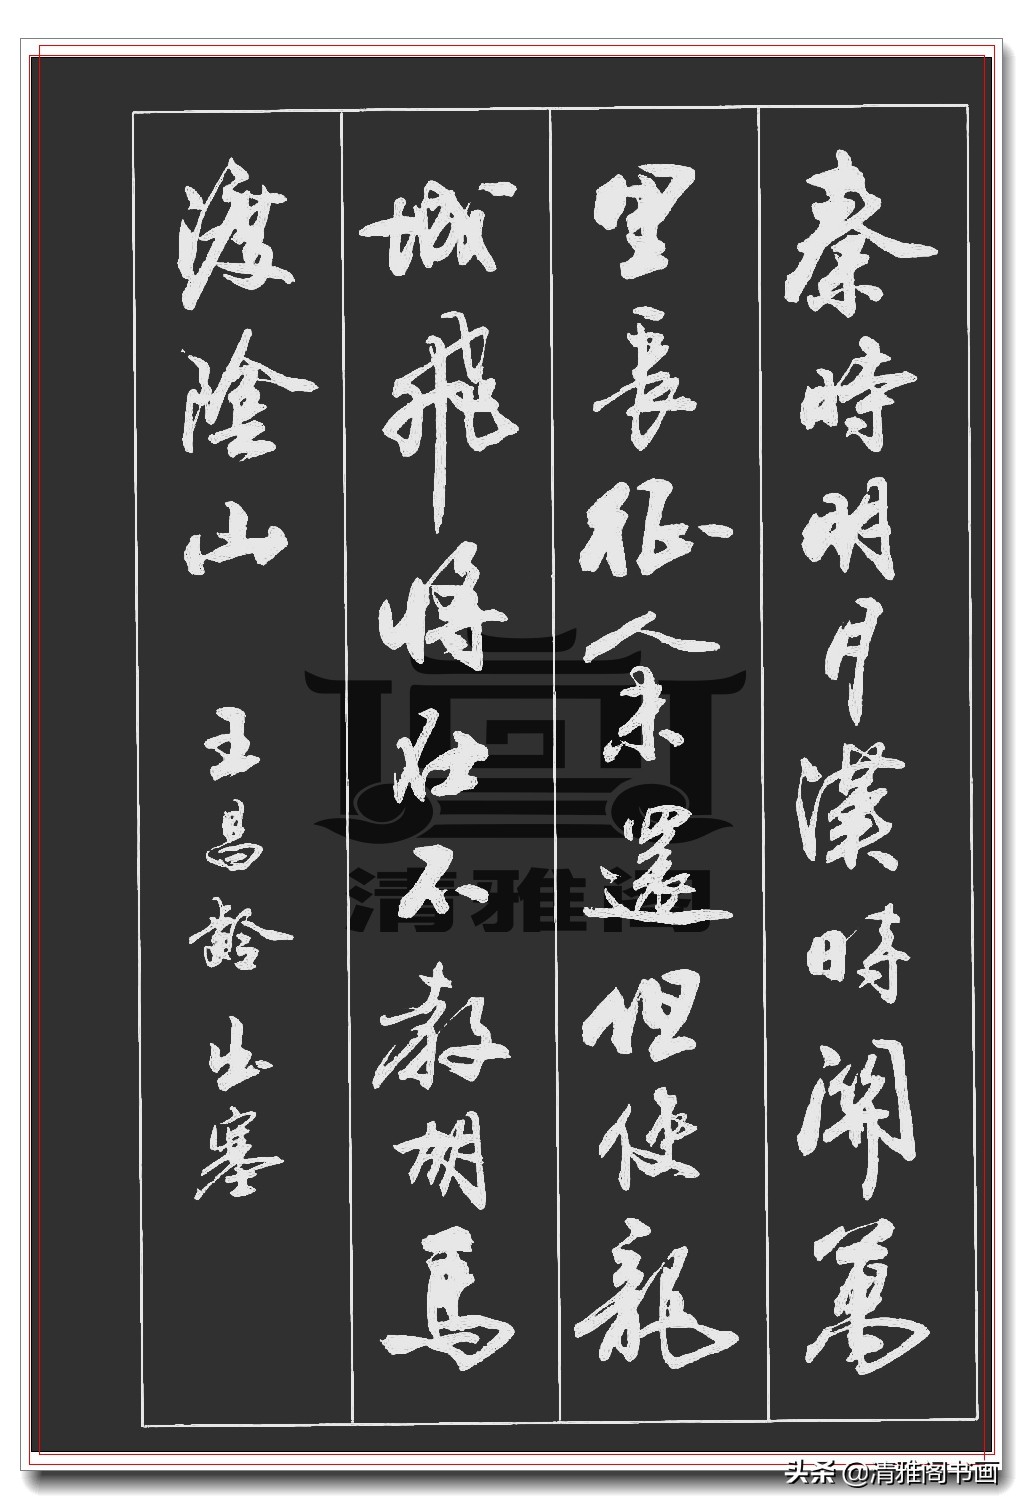 秦時明月漢時關萬
里長征人未還但使龍
城飛將在不教胡馬
渡陰山 王昌齡 出塞
清雅阁
头条 @清雅阁书画